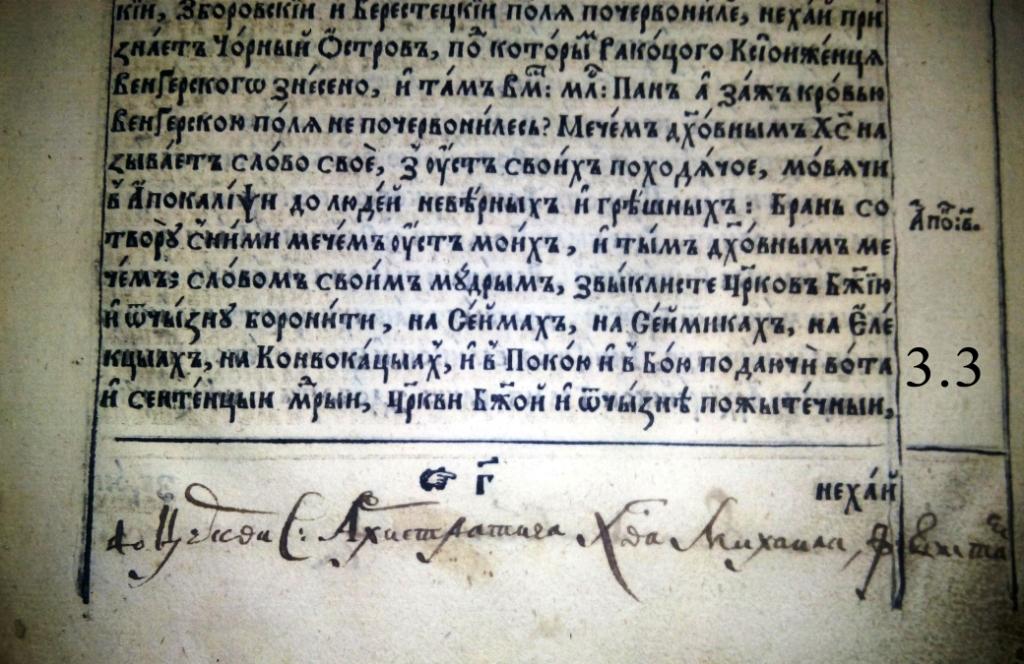 кїи, Зборовскїи и Берестецкїи поля почервони́ле, неха́й при
зна́етъ Чо́рный О́стровъ, по҆ кото́ры҆м Рако́цого Ксїонже́нця
Венґе́рскогѡ зне́сено, и҆ та́мъ Вм҃: мл҃: Панъ а҆ за́жъ кро́вью
Венґе́рскою по́ля не почервони́лесь? Мече́мъ дх҃о́внымъ Хс҃ на
зыва́етъ сло́во своѐ, з̾ ѹ҆́стъ свои́хъ походя́чое, мо́вячи
в̾ А҆покалі́ѱи до люде́й неве́рныхъ и҆ грѣ́шныхъ: Брань со
творю̀ с̾ни́ми мече́мъ ѹ҆́стъ мои́хъ, и҆ ты́мъ дх҃о́внымъ ме
че́мъ; сло́вомъ свои́мъ мꙋ́дрымъ, звы́клисте Цр҃ковъ Бж҃їю
и҆ ѿчы́знꙋ борони́ти, на Се́ймахъ, на Се́ймикахъ, на Є҆ле́
кцыахъ, на Конвока́цыах̾, и҆ в̾ Поко́ю и҆ в̾ Бо́ю подаючѝ во́та
и҆ сенте́нцыи мⷣрыи, Цр҃кви Бж҃ой и҆ ѿчы́знѣ пожыте́чныи,
А҆по҃: в҃.
3.3
☞ г҃
неха́й
до Церкви С: Архистратига Хва Михаила,